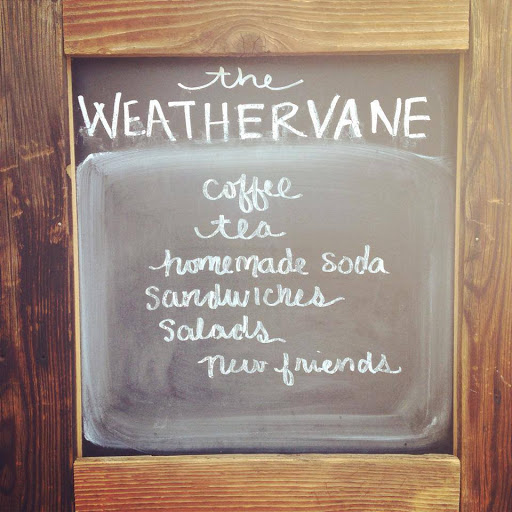 the
WEATHERVANE
coffee
tea
homemade soda
sandwiches
salads
new friends